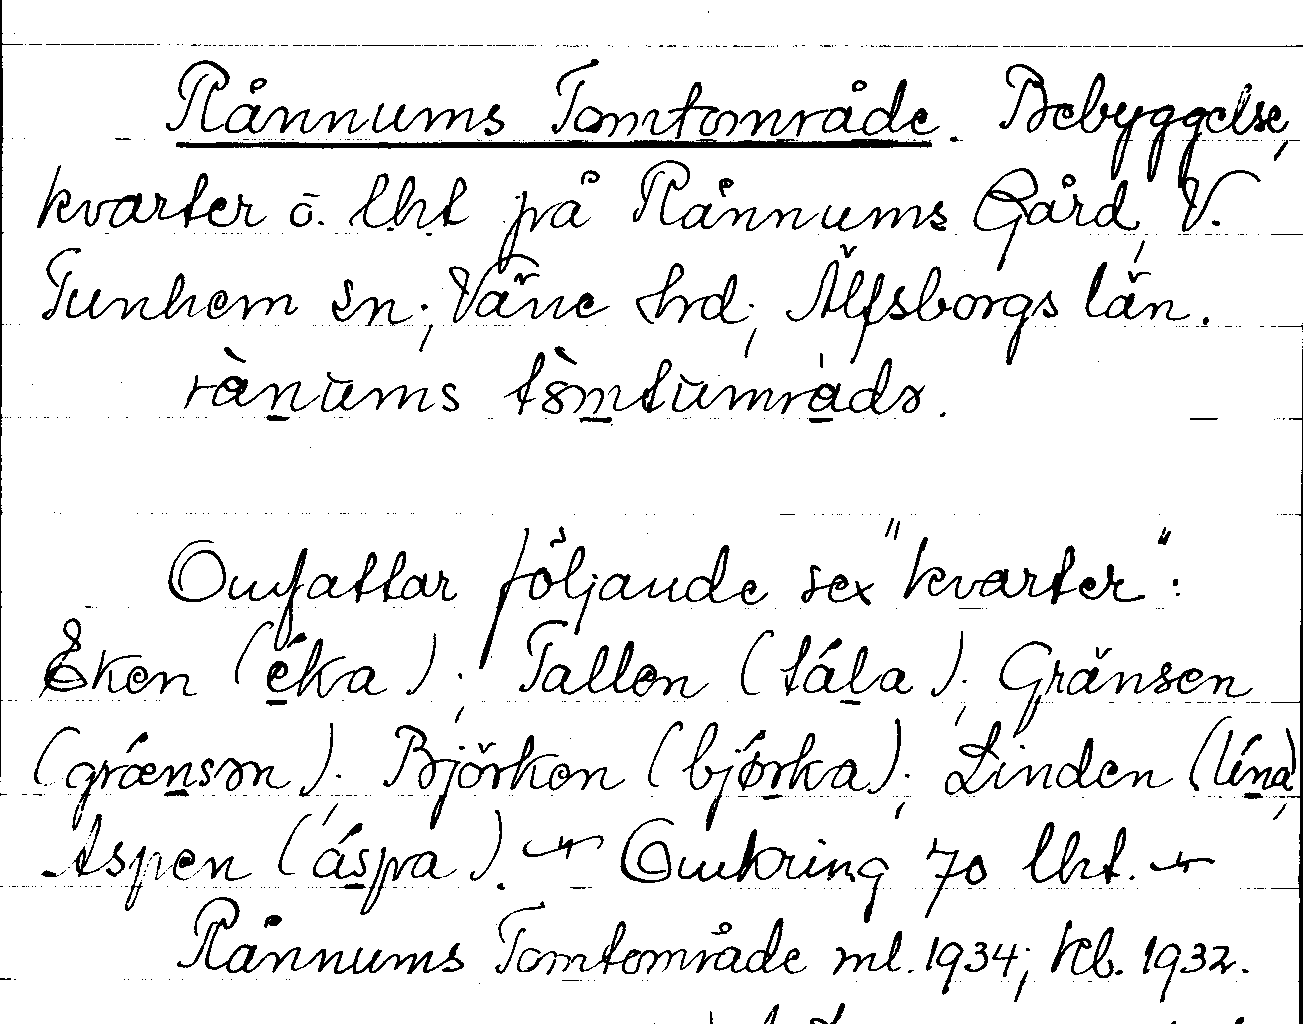 Rånnums Tomtområde. Bebyggelse,
kvarter o. lht på Rånnums Gård, V.
Tunhem sn; Väne hrd; Älfsborgs län.
rànŭms tòmtŭmrads.
Omfattar följande sex "kvarter":
Eken (éka); Tallen (tála); Gränsen
(grǽnsən); Björken (bjǿrka); Linden (lína),
Aspen (áspa). — Omkring 70 lht. —
Rånnums Tomtområde ml. 1934; Kb. 1932.